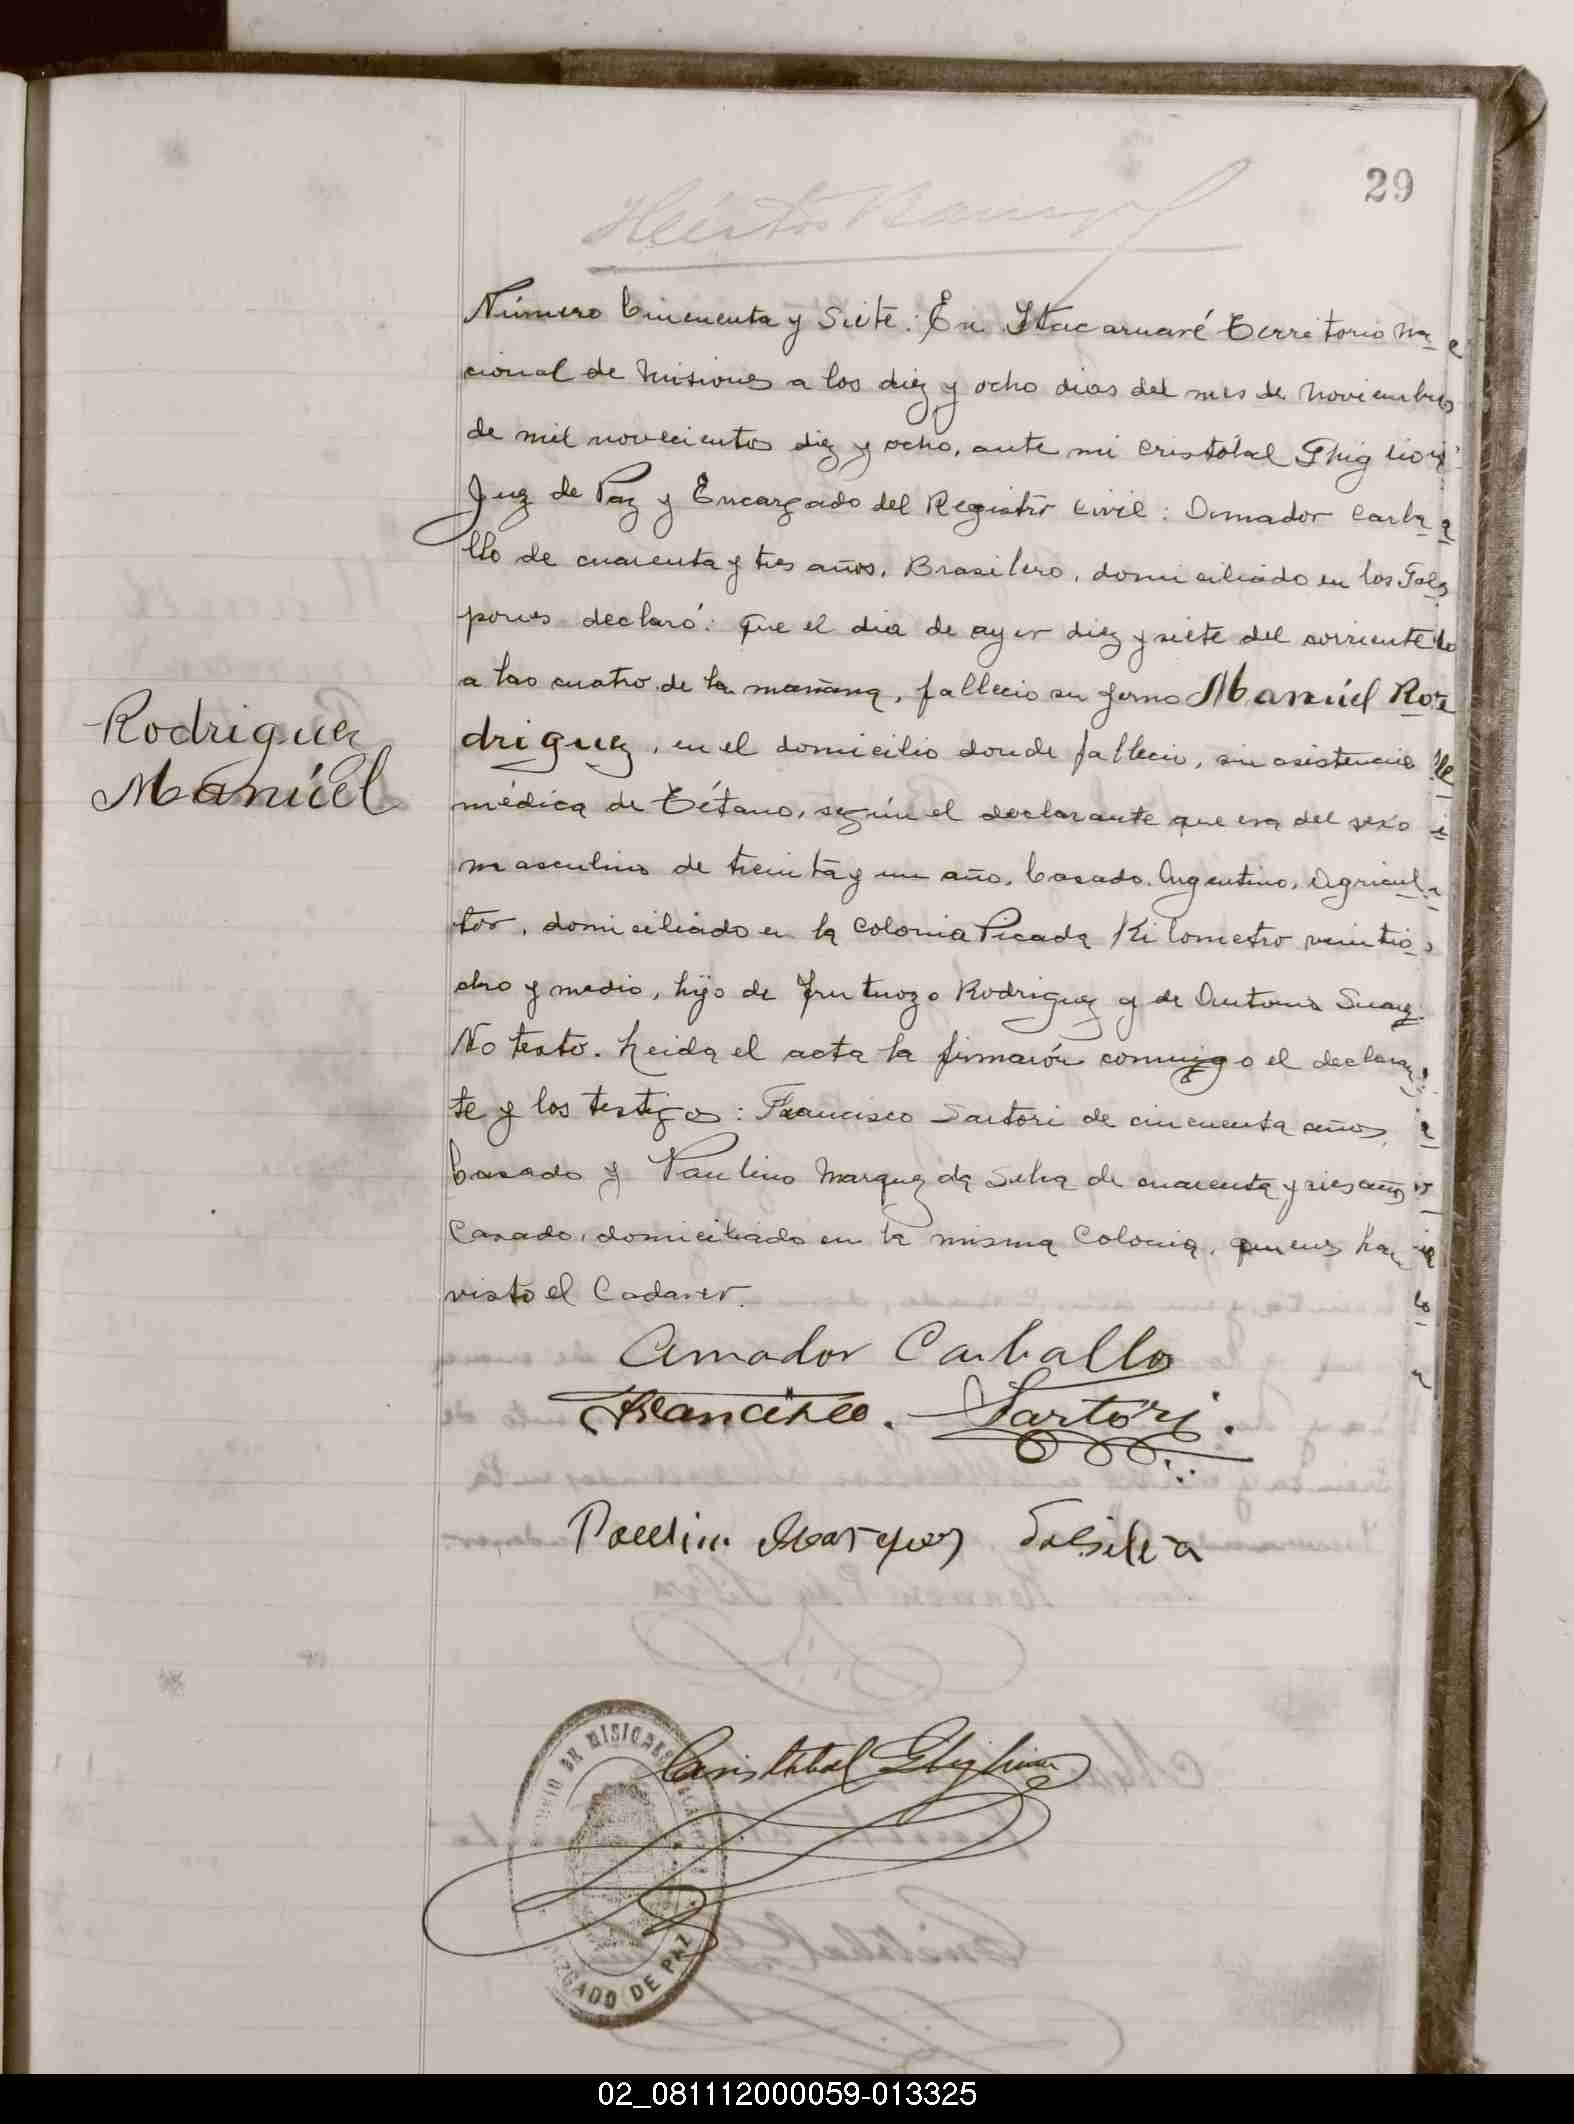 29
Número Cincuenta y Siete: En Itacaruaré Territorio Na
cional de Misiones a los diez y ocho dias del mes de Noviembre
de mil novecientos diez y ocho, ante mi Cristóbal Ghiglioni
Juez de Paz y Encargado del Registro Civil: Amador Carba
llo de cuarenta y tres años, Brasilero, domiciliado en los Gal
pones declaró: que el dia de ayer diez y siete del corriente
a las cuatro de la mañana, fallecio su yerno Manuél Ro
driguez, en el domicilio donde fallecio, sin asistencia
médica de Tétano, según el declarante que era del sexo
masculino de treinta y un año, Casado, Argentino, Agricul
tor, domiciliado en la Colonia Picada Kilometro veintio
cho y medio, hijo de Frutuozo Rodriguez y de Antonia Suarez.
No testo. Leida el acta la firmarón conmigo el declaran
te y los testigos: Francisco Sartori de cincuenta años,
Casado y Paulino Marquez da Silva de cuarenta y seis años
Casado, domiciliado en la misma Colonia, quienes han
visto el Cadaver.
Rodriguez
Manúel
Amador Carballo
Francisco. Sartori.
Paulino Marques Dasilva
Cristobal Ghiglioni
DE MISIONES
JUZGADO DE PAZ
02_081112000059-013325